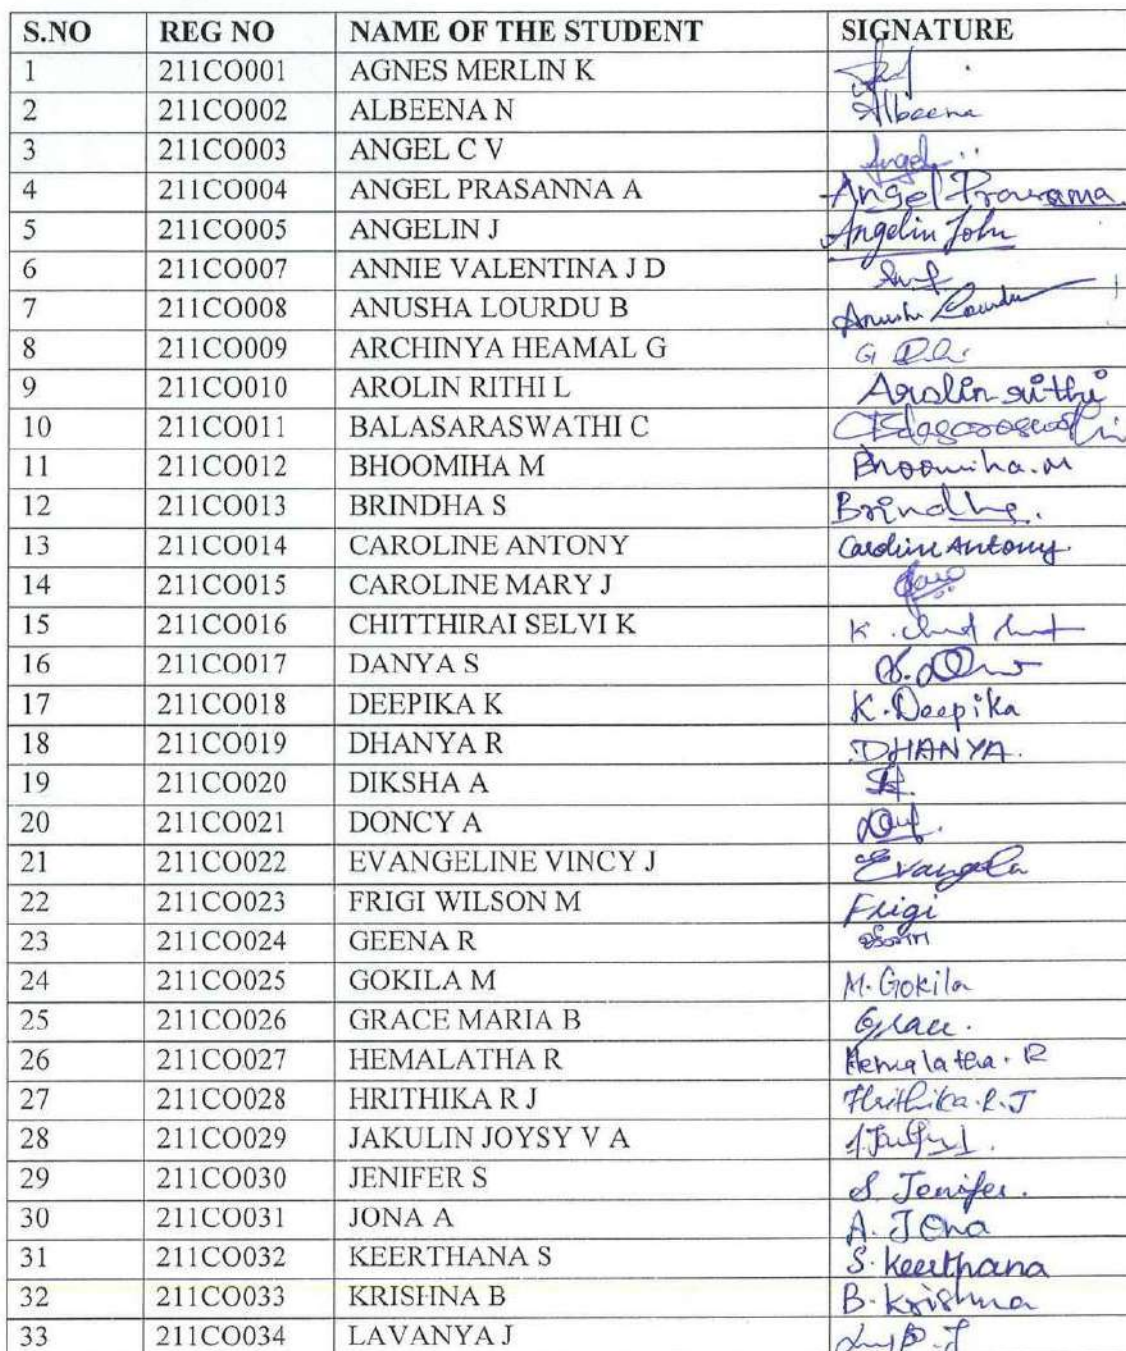 S.NO REG NO NAME OF THE STUDENT SIGNATURE
1 211CO001 AGNES MERLIN K
2 211CO002 ALBEENA N Albeena
3 211CO003 ANGEL C V Angel
4 211CO004 ANGEL PRASANNA A Angel Prasanna
5 211CO005 ANGELIN J Angelin John
6 211CO007 ANNIE VALENTINA J D
7 211CO008 ANUSHA LOURDU B Anusha Lourdu
8 211CO009 ARCHINYA HEAMAL G G
9 211CO010 AROLIN RITHI L Arolin rithi
10 211CO011 BALASARASWATHI C
11 211CO012 BHOOMIHA M Bhoomiha.M
12 211CO013 BRINDHA S Brindha.
13 211CO014 CAROLINE ANTONY Caroline Antony.
14 211CO015 CAROLINE MARY J Caro
15 211CO016 CHITTHIRAI SELVI K K.
16 211CO017 DANYA S
17 211CO018 DEEPIKA K K.Deepika
18 211CO019 DHANYA R DHANYA.
19 211CO020 DIKSHA A
20 211CO021 DONCY A
21 211CO022 EVANGELINE VINCY J
22 211CO023 FRIGI WILSON M Frigi
23 211CO024 GEENA R
24 211CO025 GOKILA M M.Gokila
25 211CO026 GRACE MARIA B Grace.
26 211CO027 HEMALATHA R Hemalatha.R
27 211CO028 HRITHIKA R J Hrithika.R.J
28 211CO029 JAKULIN JOYSY V A
29 211CO030 JENIFER S S.Jenifer.
30 211CO031 JONA A A.Jona
31 211CO032 KEERTHANA S S.Keerthana
32 211CO033 KRISHNA B B.Krishna
33 211CO034 LAVANYA J